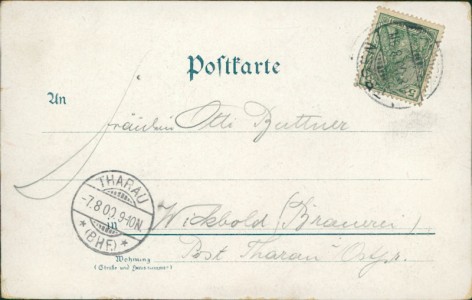 Postkarte
An
Fräulein Otti Büttner
THARAU
-7.8.00.9-10N.
* (BHF.) *
in
Wickbold (Brauerei)
Post Tharau Ostpr.
Wohnung
(Straße und Hausnummer)
5